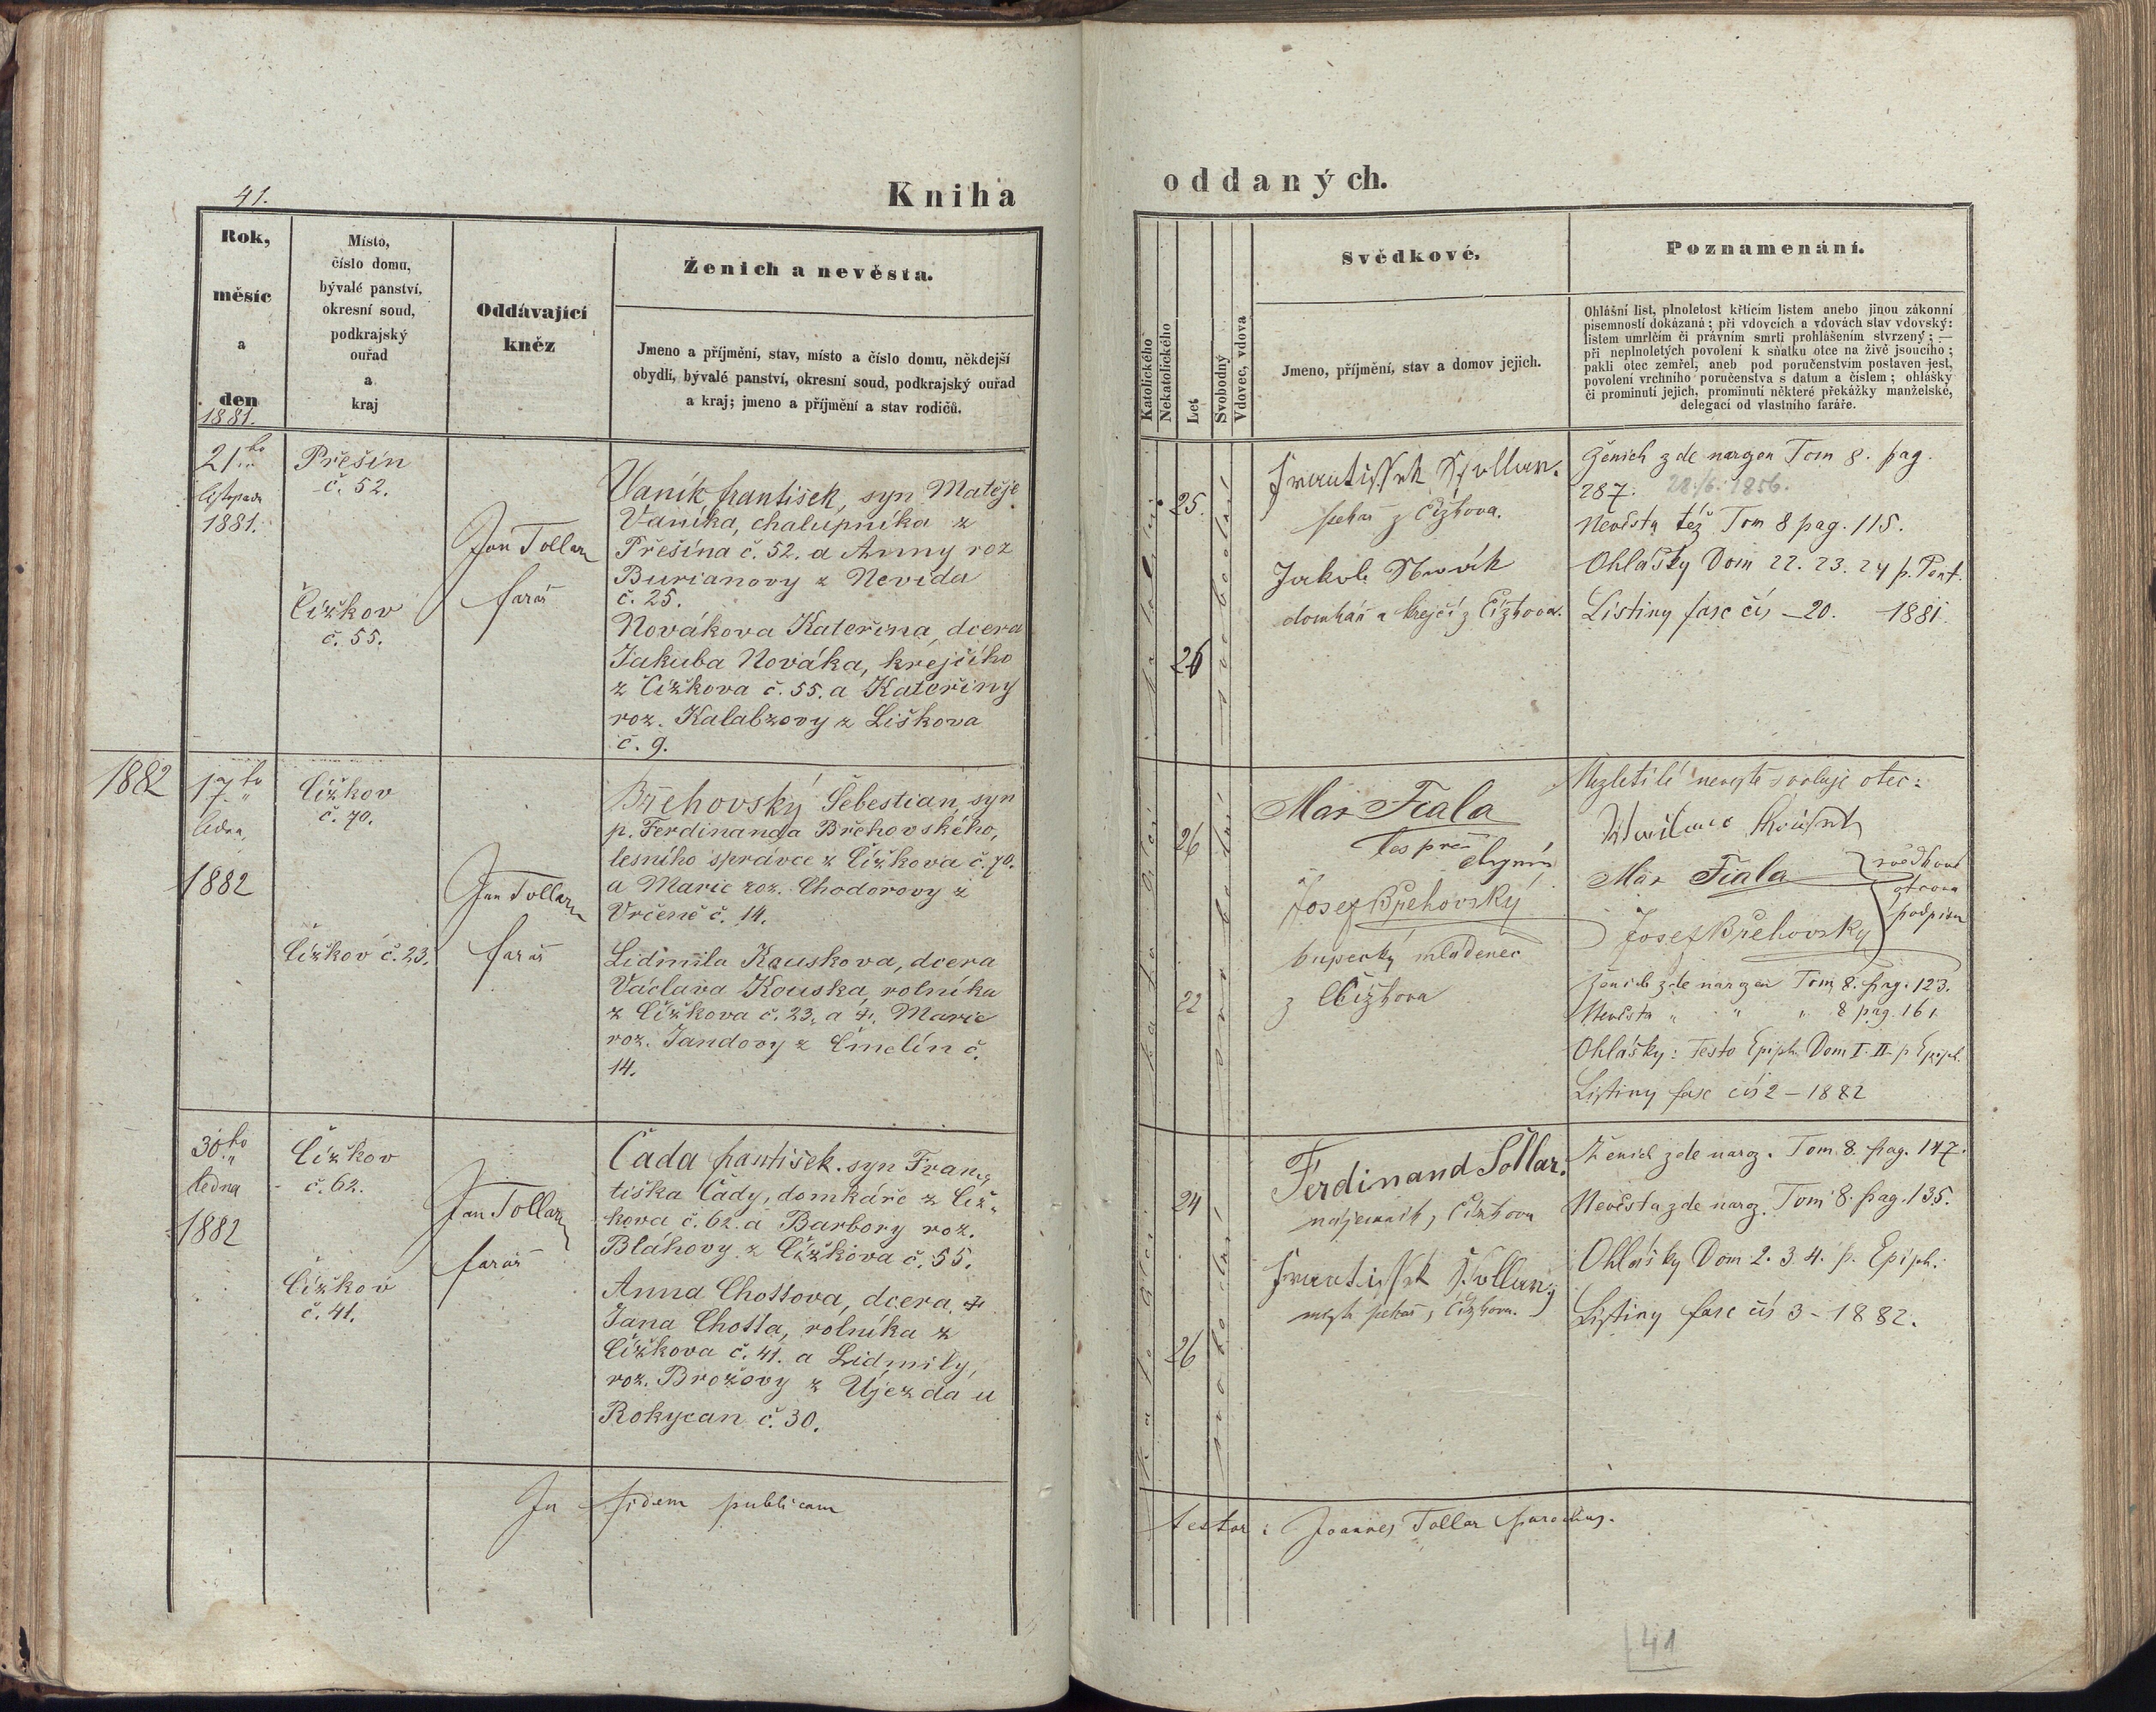 41.
Kniha
oddaných.
Rok,
měsíc
a
den
1881.
Místo,
číslo domu,
bývalé panství,
okresní soud,
podkrajský
ouřad
a
kraj
Oddávající
kněz
Ženich a nevěsta.
Jmeno a příjmění, stav, místo a číslo domu, někdejší
obydlí, bývalé panství, okresní soud, podkrajský ouřad
a kraj; jmeno a příjmění a stav rodičů.
Katolického
Nekatolického
Let
Svobodný
Vdovec, vdova
Svědkové.
Jmeno, příjmění, stav a domov jejich.
Poznamenání.
Ohlášní list, plnoletost křticím listem anebo jinou zákonní
písemností dokázaná; při vdovcích a vdovách stav vdovský:
listem umrlčím či právním smrti prohlášením stvrzený; —
při neplnoletých povolení k sňatku otce na živě jsoucího;
pakli otec zemřel, aneb pod poručenstvím postaven jest,
povolení vrchního poručenstva s datum a číslem; ohlášky
či prominutí jejich, prominutí některé překážky manželské,
delegací od vlastního faráře.
21.ho
listopadu
1881.
Přešín
č. 52.
Čížkov
č. 55.
Jan Tollar
farář
Vaník František, syn Matěje
Vaníka, chalupníka z
Přešína č. 52. a Anny roz
Burianovy z Nevida
č. 25.
Nováková Kateřina, dcera
Jakuba Nováka, krejčího
z Čížkova č. 55. a Kateřiny
roz. Kalabzovy z Liškova
č. 9.
katolický
25.
26
svobodní
František
z Čížkova.
Jakub Novák
domkář a krejčí z Čížkova.
Ženich zde narozen Tom 8. pag.
287. 28./6. 1856.
Nevěsta též Tom 8 pag. 115.
Ohlášky Dom 22. 23. 24 p. Pent.
Listiny fasc čís — 20. 1881.
1882
17ho
ledna
1882
Čížkov
č. 70.
Čížkov č. 23.
Jan Tollar
farář
Břehovský Šebestian, syn
p. Ferdinanda Břehovského,
lesního správce z Čížkova č. 70.
a Marie roz. Chodorovy z
Vrčeně č. 14.
Lidmila Kouskova, dcera
Václava Kouska, rolníka
z Čížkova č. 23. a Marie
roz. Jandovy z Čmelín č.
14.
26
22
Max Fiala
Josef Břehovský
kupecký mládenec
z Čížkova
Nezletilé nevěstě svoluje otec:
Max Fiala
svědkové
otcova
podpisu
Josef Břehovský
Ženich zde narozen Tom 8. pag. 123.
Nevěsta " " " 8 pag. 161.
Ohlášky: Festo Epiph. Dom I. II. p Epiph.
Listiny fasc čís 2 — 1882
30ho
ledna
1882
Čížkov
č. 62.
Čížkov
č. 41.
Jan Tollar
farář
Čada František. syn Fran„
tiška Čády, domkáře z Číž„
kova č. 62. a Barbory roz.
Bláhovy z Čížkova č. 55.
Anna Chottova, dcera †
Jana Chotta, rolníka z
Čížkova č. 41. a Lidmily,
roz. Brožovy z Újezda u
Rokycan č. 30.
24
26
Ferdinand Šollar.
nájemník, Čížkova
František
Čížkova.
Ženich zde naroz. Tom. 8. pag. 147.
Nevěsta zde naroz. Tom 8. pag. 135.
Ohlášky Dom 2. 3. 4. p. Epiph.
Listiny fasc čís 3 - 1882.
In fidem publicam
testor: Joannes Tollar parochus.
41